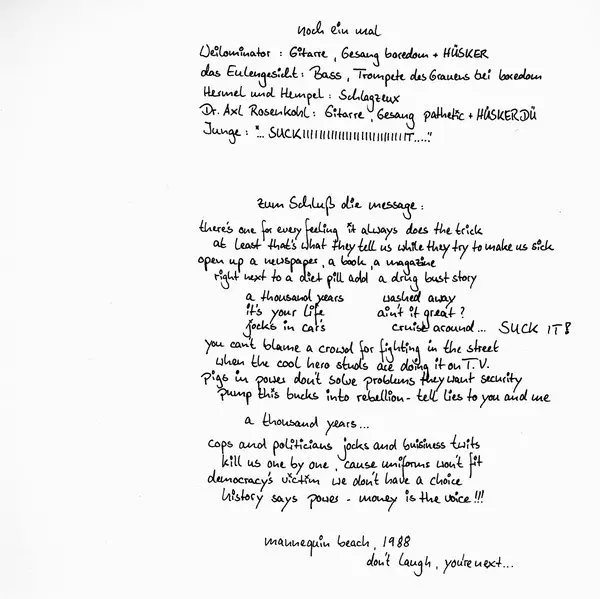 noch ein mal
Weilominator : Gitarre, Gesang boredom + HÜSKER
das Eulengesicht : Bass, Trompete des Grauens bei boredom
Hermel und Hempel : Schlagzeux
Dr. Axl Rosenkohl : Gitarre, Gesang pathetic + HÜSKER DÜ
Junge : "... SUCK!!!!!!!!!!!!!!!!!!!!!!!!IT....."
zum Schluß die message :
there's one for every feeling it always does the trick
at least that's what they tell us while they try to make us sick
open up a newspaper, a book, a magazine
right next to a diet pill add a drug bust story
a thousand years washed away
it's your life ain't it great?
jocks in cars cruise around... SUCK IT!
you can't blame a crowd for fighting in the street
when the cool hero studs are doing it on T.V.
pigs in power don't solve problems they want security
pump this bucks into rebellion - tell lies to you and me
a thousand years...
cops and politicians jocks and buisiness twits
kill us one by one, 'cause uniforms won't fit
democracy's victim we don't have a choice
history says power - money is the voice!!!
mannequin beach, 1988
don't laugh, you're next...